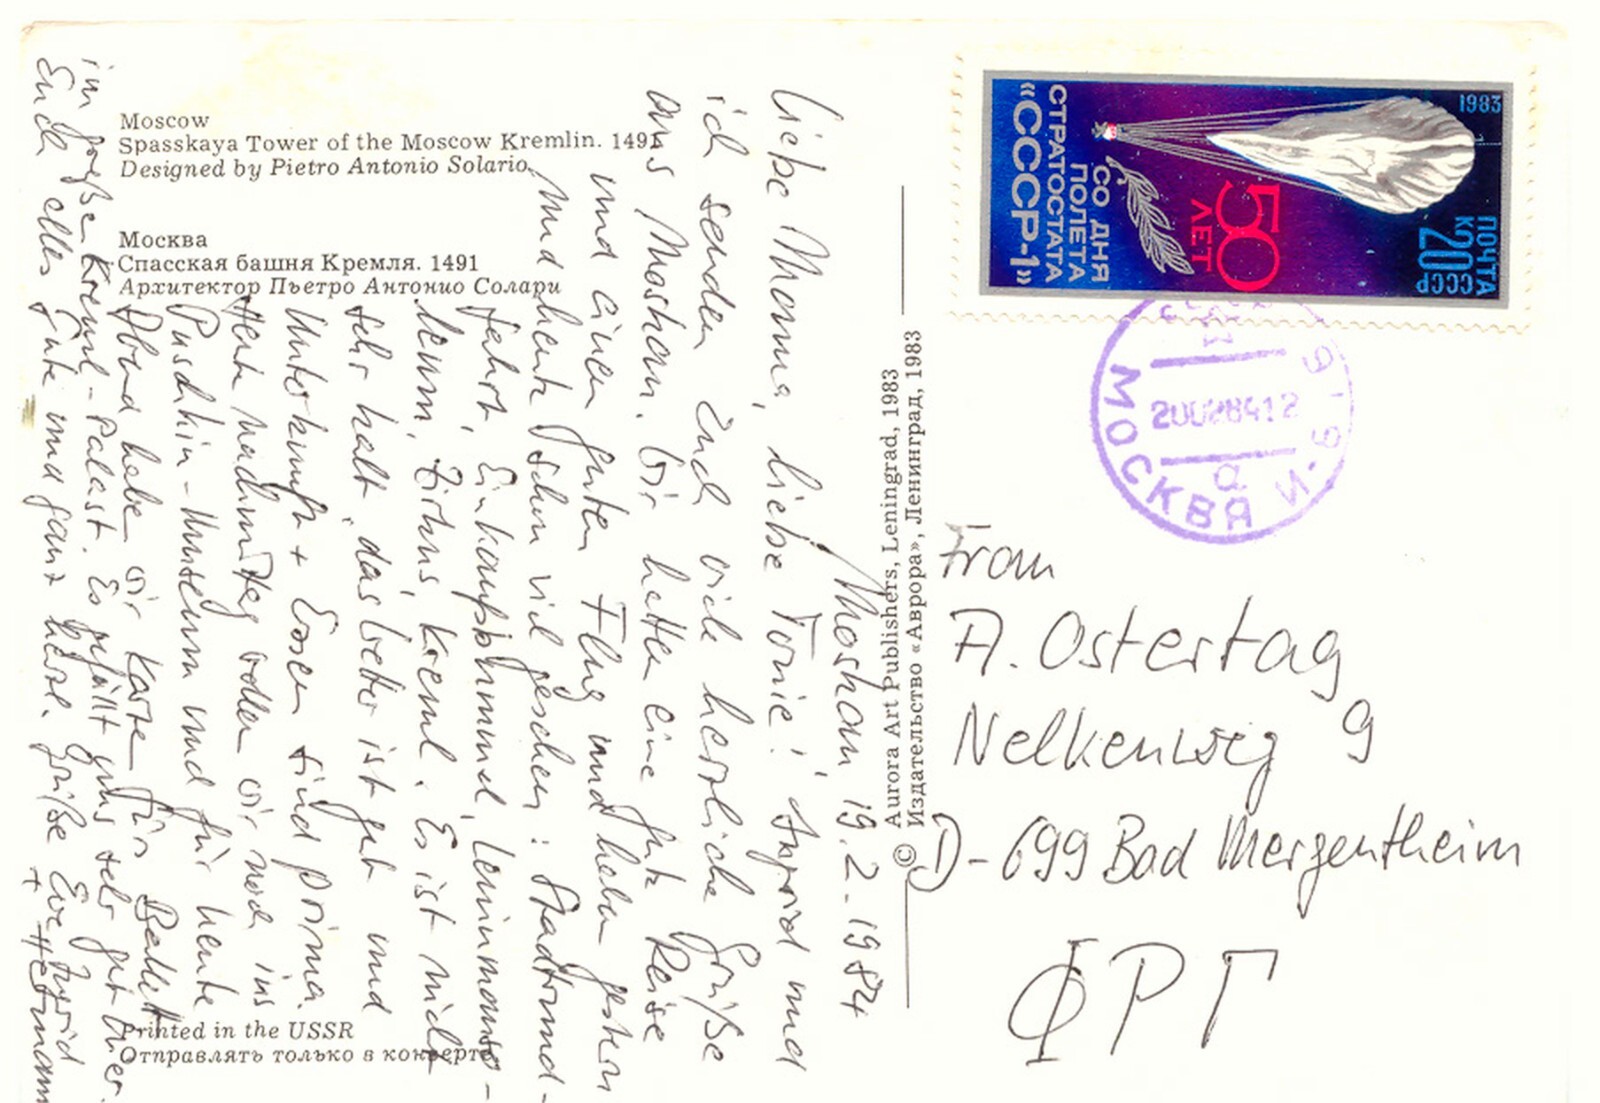 Moscow
Spasskaya Tower of the Moscow Kremlin. 1491
Designed by Pietro Antonio Solario.
Москва
Спасская башня Кремля. 1491
Архитектор Пьетро Антонио Солари
Moskau, 19.2.1984
Liebe Mama, liebe Tonie! Ingrid und
ich senden Euch viele herzliche Grüße
aus Moskau. Wir hatten eine gute Reise
und einen guten Flug und haben gestern
und heute schon viel gesehen: Stadtrund-
fahrt, Einkaufsbummel, Leninmauso-
leum, Zirkus, Kreml. Es ist nicht
sehr kalt, das Wetter ist gut und
Unterkunft + Essen sind prima.
Heute nachmittag wollen wir noch ins
Puschkin-Museum und für heute
Abend haben wir Karten für Ballett
im großen Kreml-Palast. Es gefällt uns sehr gut hier.
Euch alles Gute und ganz herzl. Grüße Eure Ingrid
+ Hermann
Printed in the USSR
Отправлять только в конверте
© Aurora Art Publishers, Leningrad, 1983
Издательство «Аврора», Ленинград, 1983
1983
ПОЧТА
СССР
к20
50
ЛЕТ
СО ДНЯ
ПОЛЕТА
СТРАТОСТАТА
«СССР-1»
МОСКВА И-9
From
A. Ostertag
Nelkenweg 9
D-699 Bad Mergentheim
ФРГ